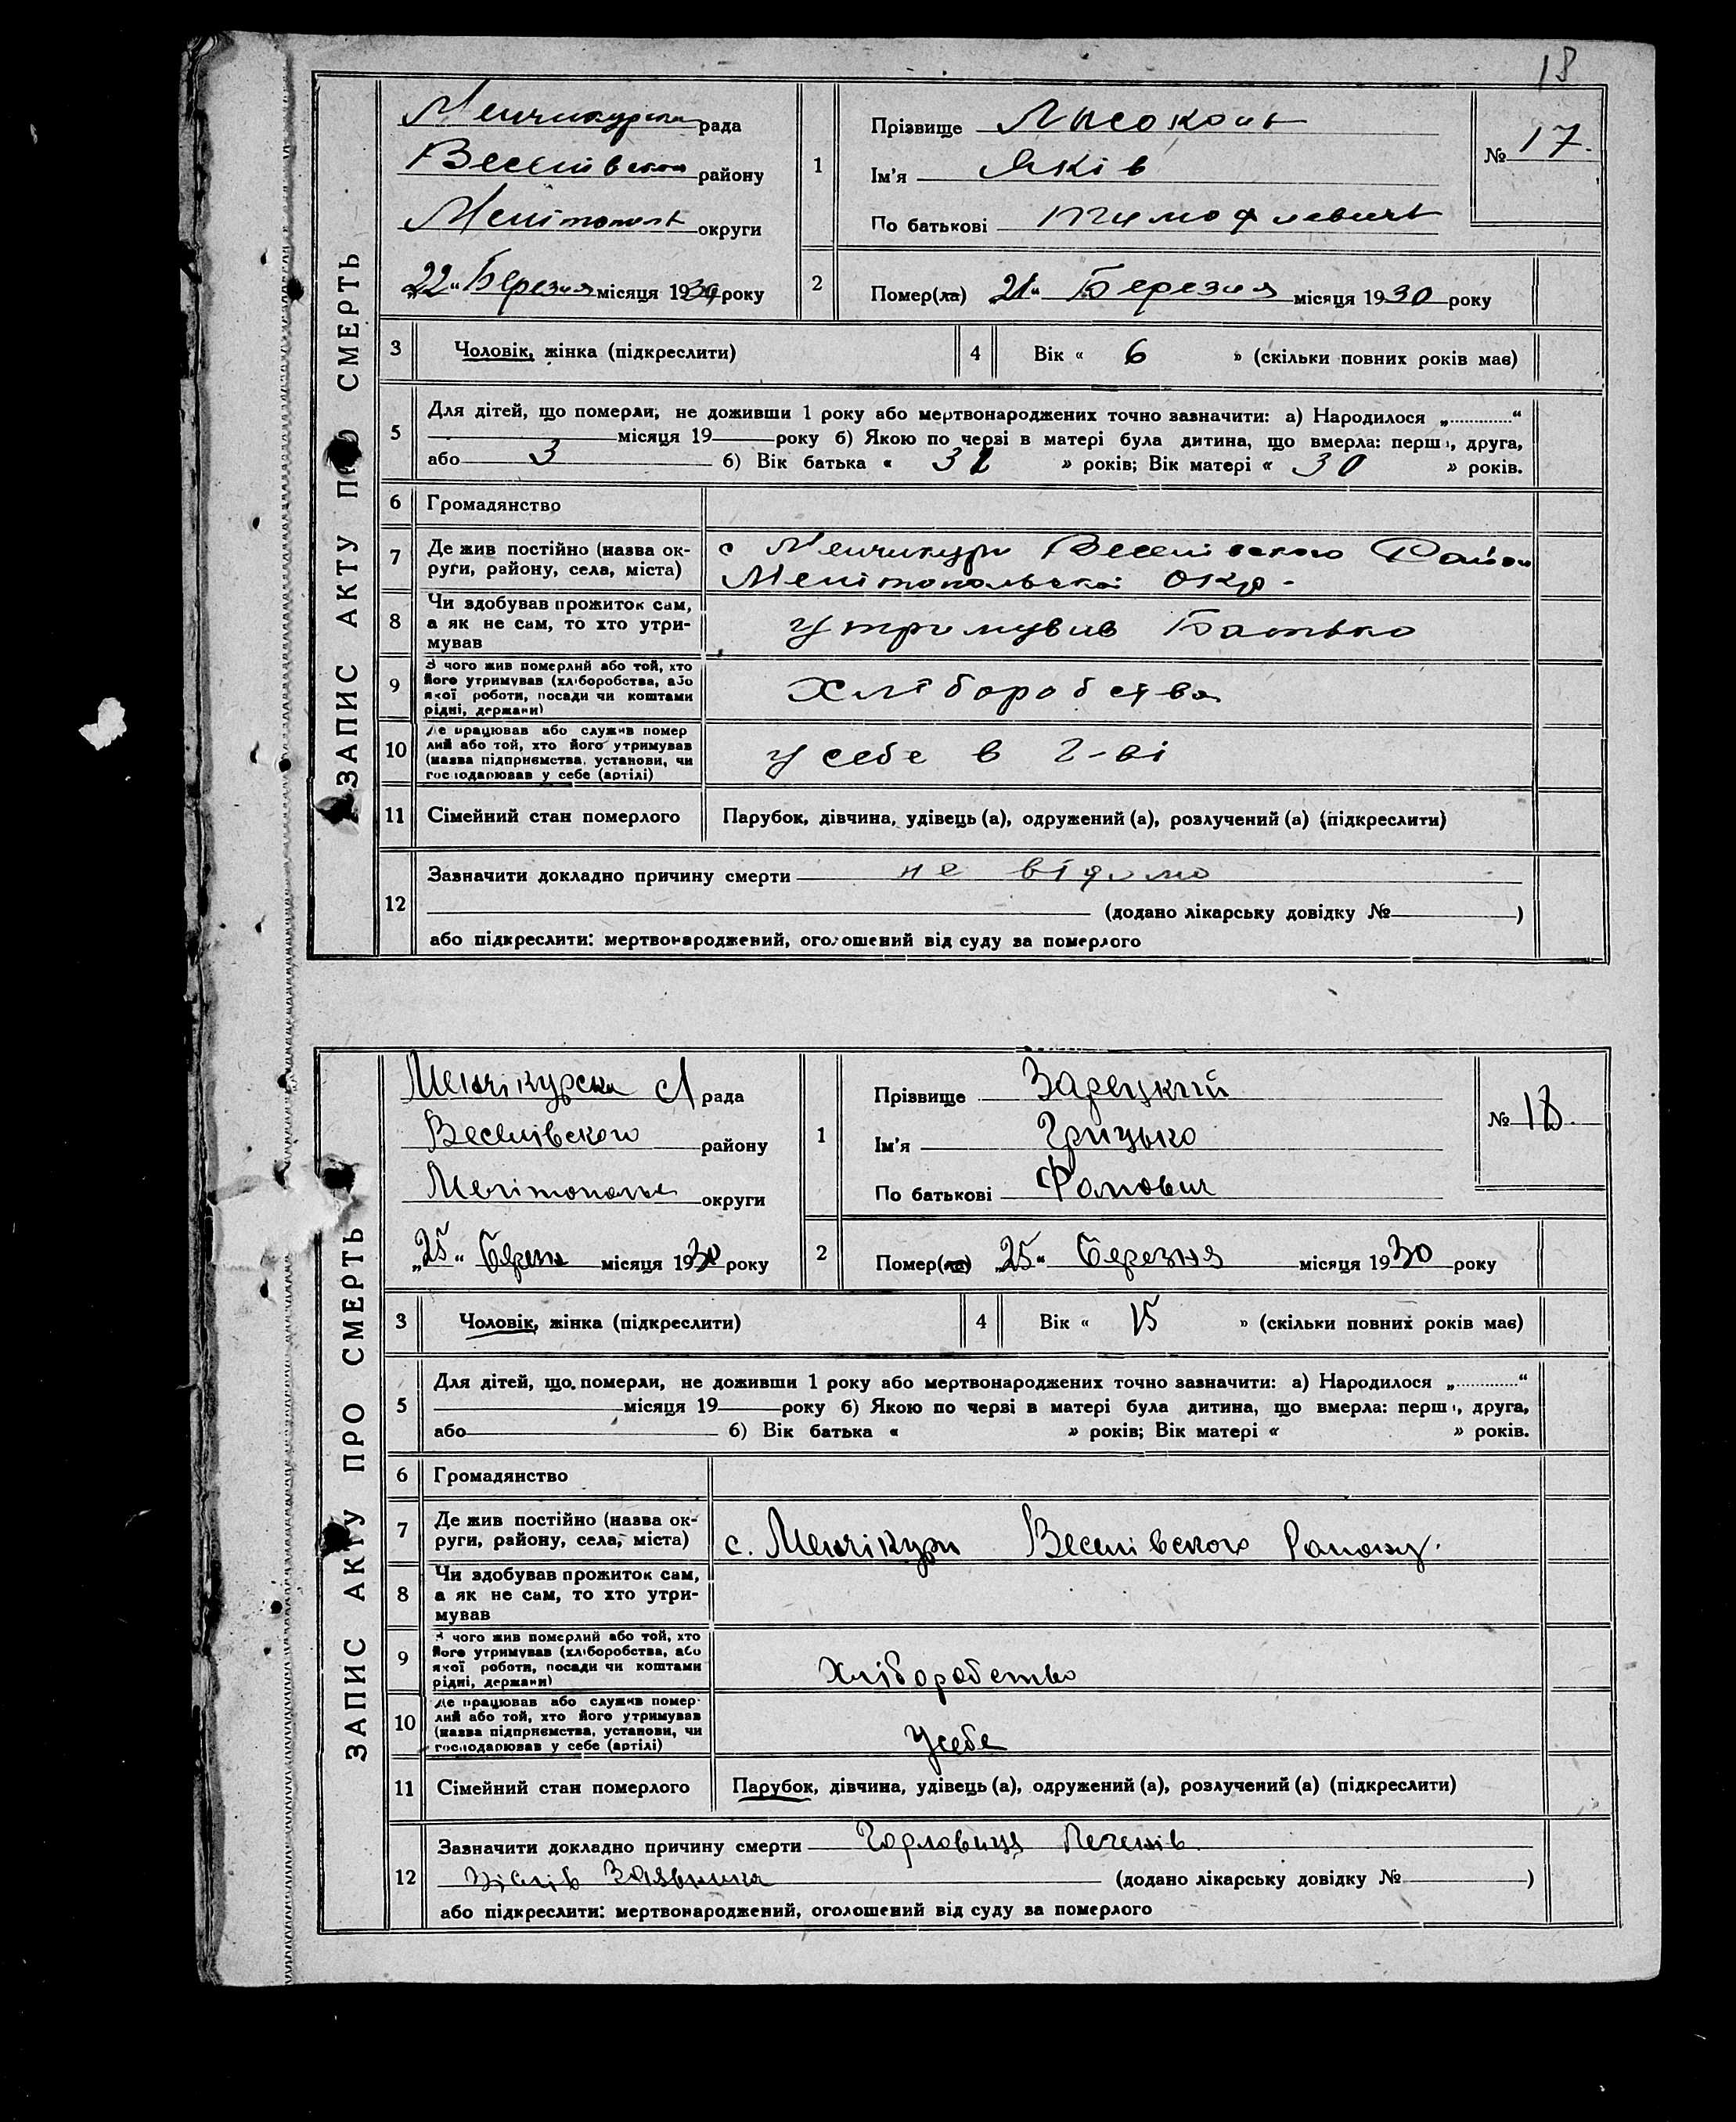 18
ЗАПИС АКТУ ПРО СМЕРТЬ
Менчикурська рада
Веселівського району
Мелітополь округи
„22“ Березня місяця 1930 року
1
Прізвище Лысоконь
Ім'я Яків
По батькові Тимофиевичь
№ 17.
2
Помер(ла) 21“ Березня місяця 1930 року
3 Чоловік, жінка (підкреслити)
4 Вік « 6 » (скільки повних років має)
5 Для дітей, що померли, не доживши 1 року або мертвонароджених точно зазначити: а) Народилося „............“
місяця 19 року б) Якою по черзі в матері була дитина, що вмерла: перша, друга,
або 3 б) Вік батька « 32 » років; Вік матері « 30 » років.
6 Громадянство
7 Де жив постійно (назва ок-
руги, району, села, міста)
с Менчикури Веселівського Район
Мелітопольської Окр-
8 Чи здобував прожиток сам,
а як не сам, то хто утри-
мував
утримував Батько
9 З чого жив померлий або той, хто
його утримував (хліборобства, або
якої роботи, посади чи коштами
рідні, держави)
Хліборобства
10 Де працював або служив помер
лий або той, хто його утримував
(назва підприємства, установи, чи
господарював у себе (артілі)
у себе в г-ві
11 Сімейний стан померлого Парубок, дівчина, удівець (а), одружений (а), розлучений (а) (підкреслити)
12 Зазначити докладно причину смерти не відомо
(додано лікарську довідку № )
або підкреслити: мертвонароджений, оголошений від суду за померлого
ЗАПИС АКТУ ПРО СМЕРТЬ
Менчікурска С/ рада
Веселівского району
Мелітополье округи
„25“ Березн місяця 1930 року
1
Прізвище Зарецкий
Ім'я Грицько
По батькові Фомович
№ 18.
2
Помер(ла) „25“ Березня місяця 1930 року
3 Чоловік, жінка (підкреслити)
4 Вік « 15 » (скільки повних років має)
5 Для дітей, що померли, не доживши 1 року або мертвонароджених точно зазначити: а) Народилося „............“
місяця 19 року б) Якою по черзі в матері була дитина, що вмерла: перша, друга,
або б) Вік батька « » років; Вік матері « » років.
6 Громадянство
7 Де жив постійно (назва ок-
руги, району, села, міста)
с. Менчікури Веселівского Району.
8 Чи здобував прожиток сам,
а як не сам, то хто утри-
мував
9 З чого жив померлий або той, хто
його утримував (хліборобства, або
якої роботи, посади чи коштами
рідні, держави)
Хліборобство
10 Де працював або служив помер-
лий або той, хто його утримував
(назва підприємства, установи, чи
господарював у себе (артілі)
Усебе
11 Сімейний стан померлого Парубок, дівчина, удівець (а), одружений (а), розлучений (а) (підкреслити)
12 Зазначити докладно причину смерти
(додано лікарську довідку № )
або підкреслити: мертвонароджений, оголошений від суду за померлого